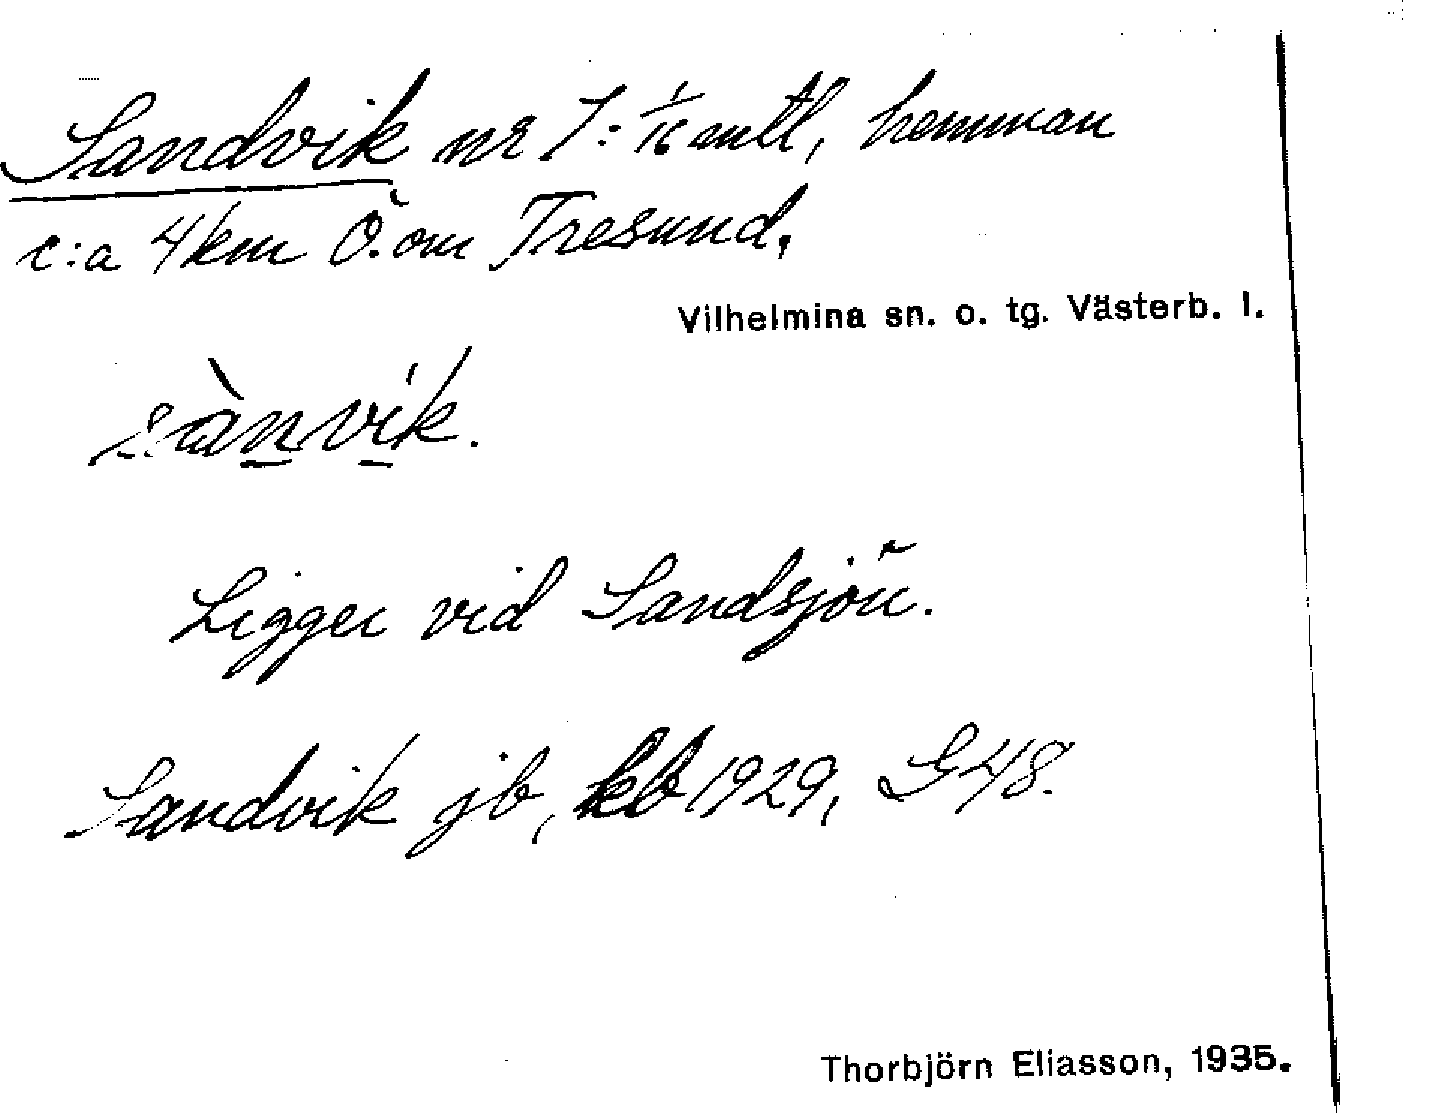 Sandvik nr 1: 1/16 mtl, hemman
c:a 4 km Ö. om Tresund.
Vilhelmina sn. o. tg. Västerb. l.
sànvik.
Ligger vid Sandsjön.
Sandvik jb, kb 1929, G48.
Thorbjörn Eliasson, 1935.